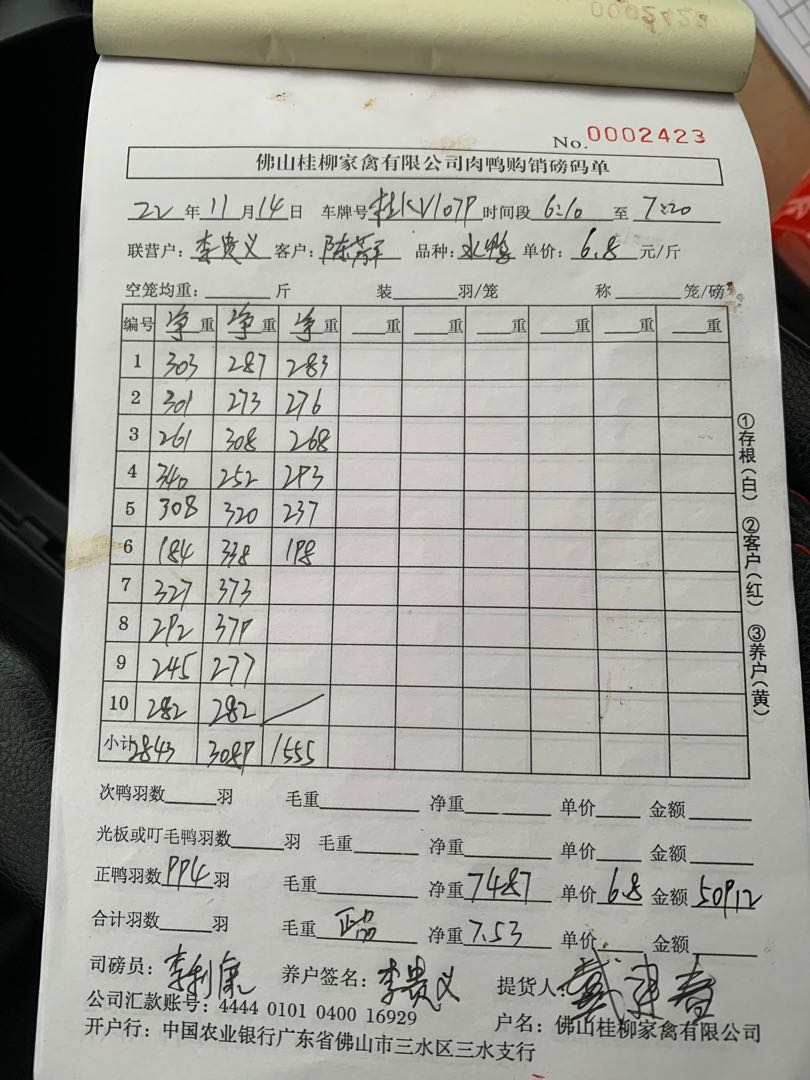 0002423
No. 0002423
佛山桂柳家禽有限公司肉鸭购销磅码单
22年11月14日 车牌号桂KV1079 时间段6:10至7:20
联营户:李贵义 客户:陈 品种:水鸭 单价:6.8元/斤
空笼均重:____斤 装____羽/笼 称____笼/磅
编号 净重 净重 净重 __重 __重 __重 __重 __重 __重
1 303 287 283
2 301 273 276
3 261 308 268
4 340 252 293
5 308 320 237
6 184 338 198
7 327 373
8 292 379
9 245 277
10 282 282 /
小计 2843 3089 1555
①存根(白) ②客户(红) ③养户(黄)
次鸭羽数____羽 毛重____ 净重____ 单价____ 金额____
光板或叮毛鸭羽数____羽 毛重____ 净重____ 单价____ 金额____
正鸭羽数994羽 毛重____ 净重7487 单价6.8 金额50912
合计羽数____羽 毛重正品 净重7.53 单价____ 金额____
司磅员:李利康 养户签名:李贵义 提货人:戴建春
公司汇款账号:4444 0101 0400 16929 户名:佛山桂柳家禽有限公司
开户行:中国农业银行广东省佛山市三水区三水支行